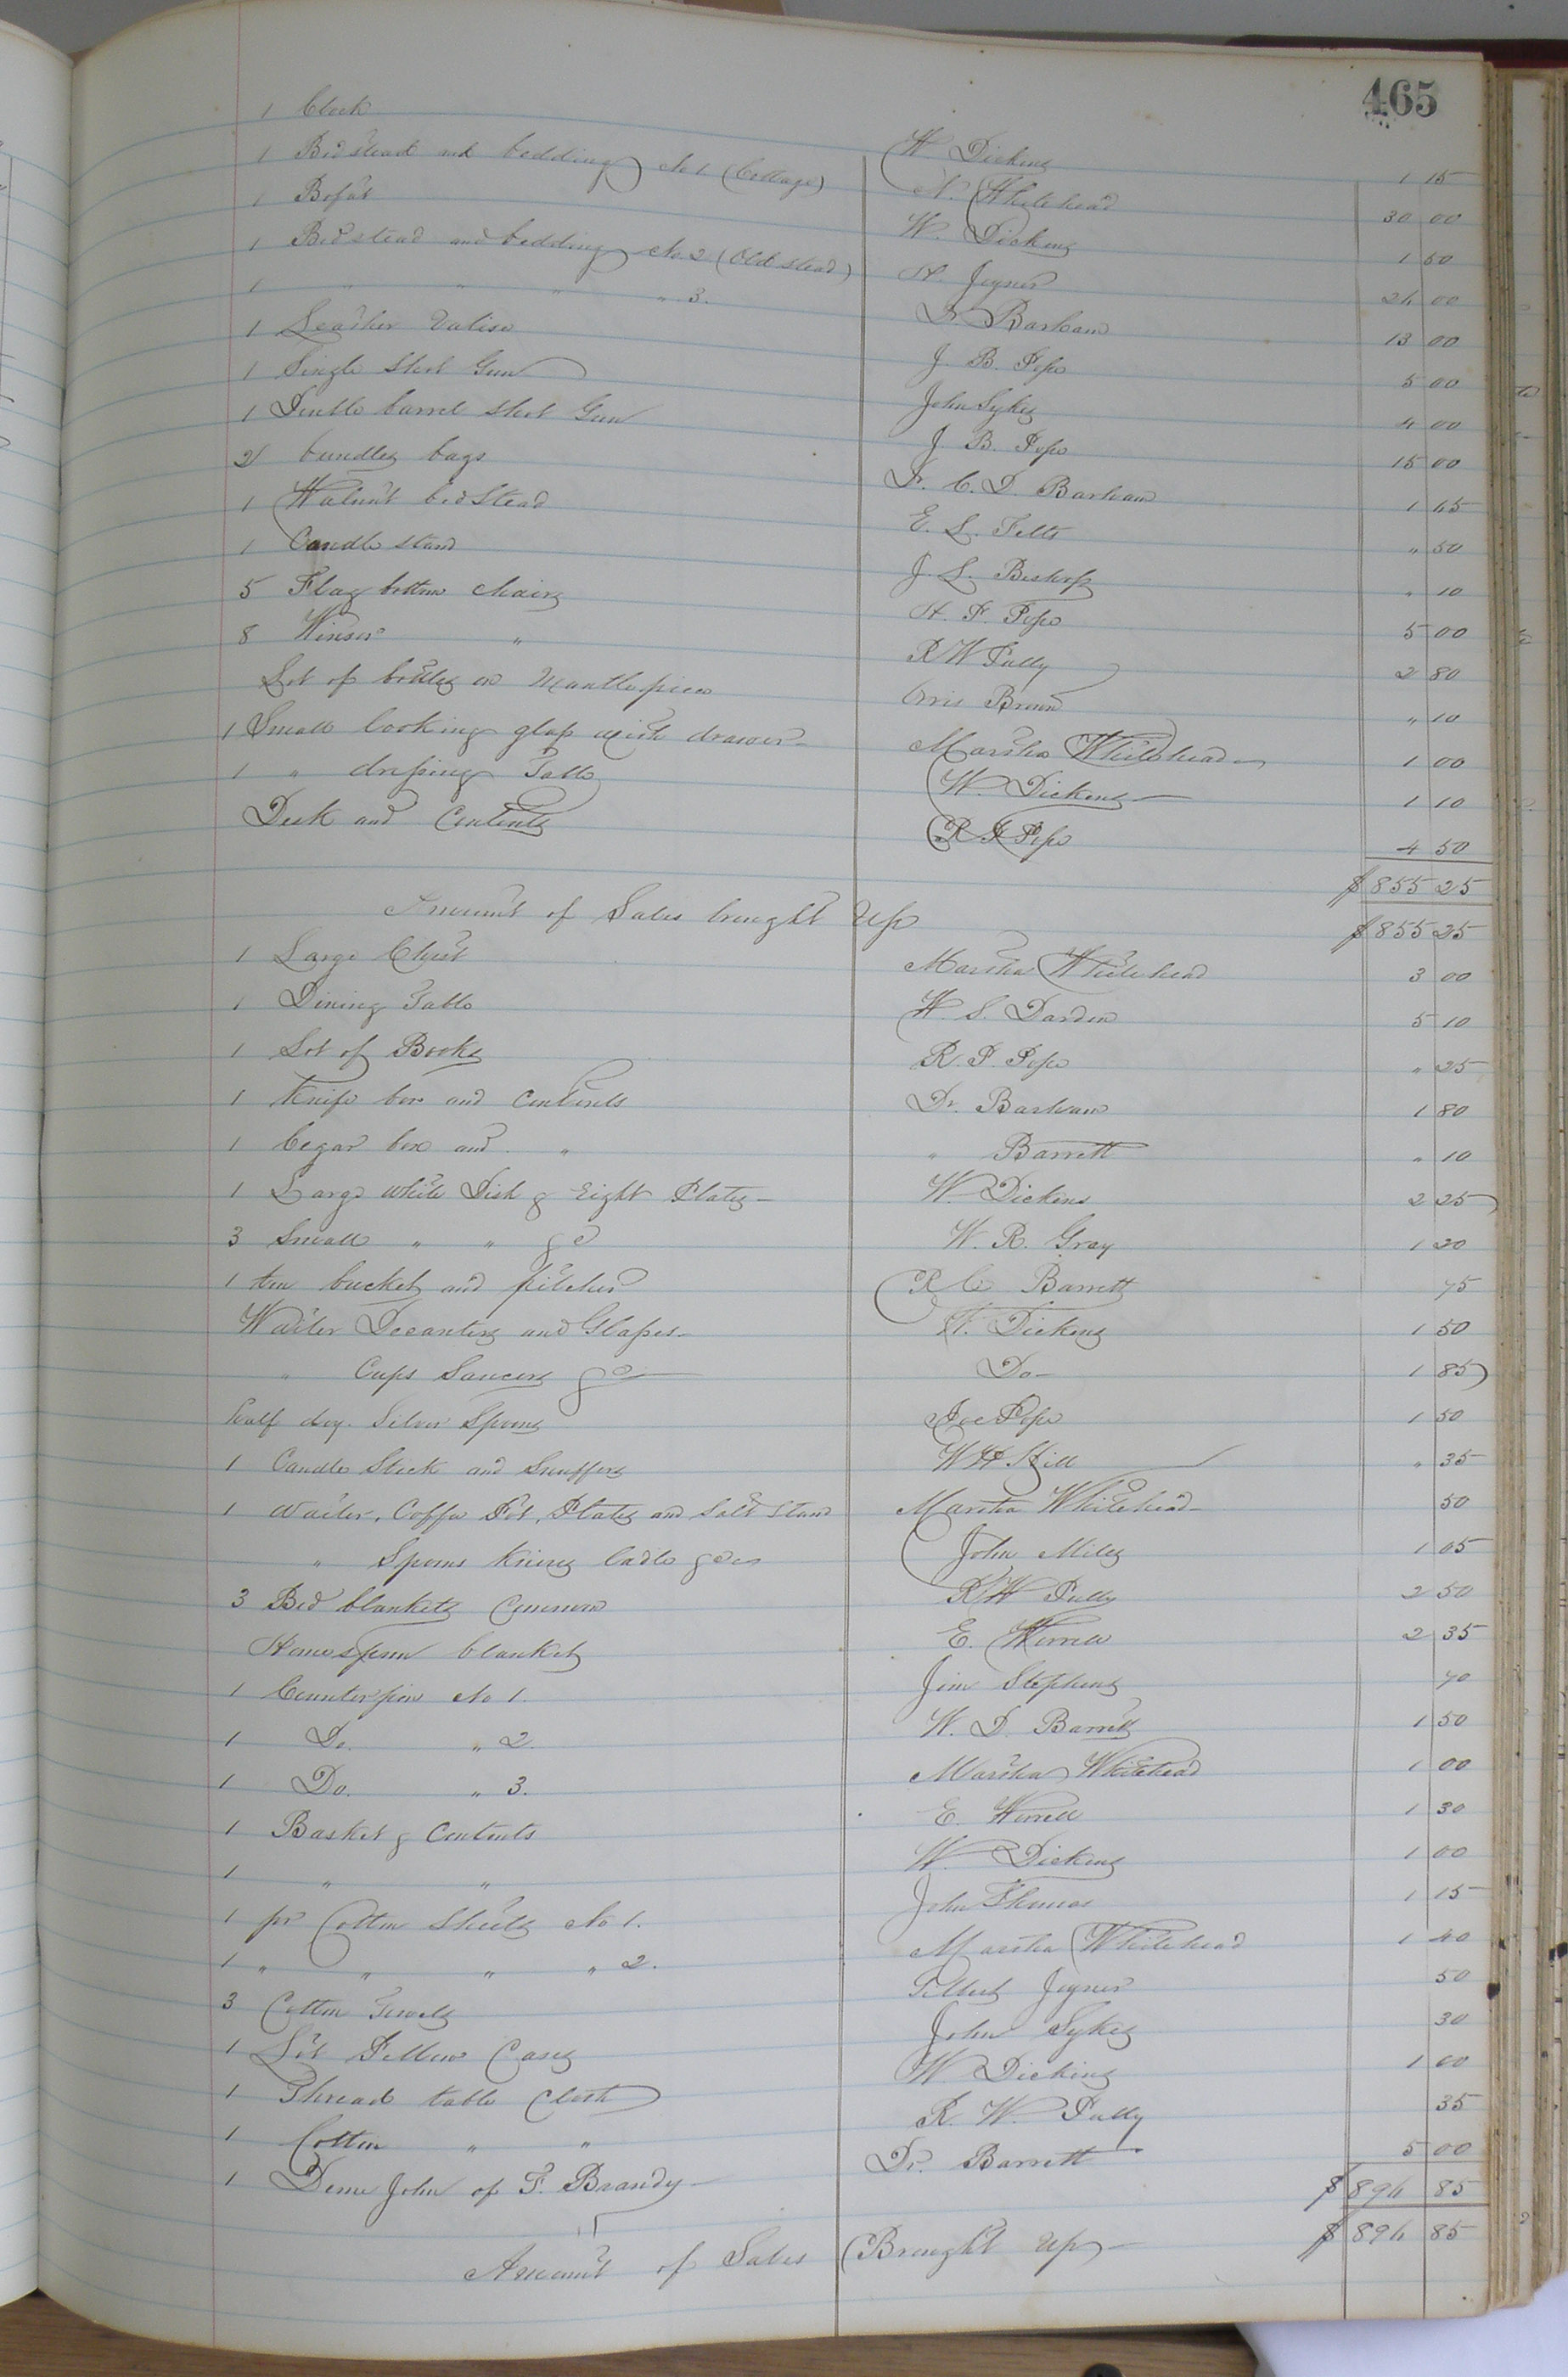 465
1 Clock W Dickens 1 15
1 Bedstead and bedding No 1. (Cottage) N. Whitehead 30 00
1 Bofat W. Dickens 1 50
1 Bedstead and bedding No 2 (Old stead) Joyner 24 00
1 " " " " 3. Dr. Barham 13 00
1 Leather Valise J. B. Pope 5 00
1 Single Shot Gun John Sykes 4 00
1 Double barrel shot Gun J. B. Pope 15 00
2 bundles bags Dr. C. D. Barham 1 45
1 Walnut bedstead E. L. Felts " 50
1 Candle stand J. L. Bishop " 10
5 Flag bottom chairs H. P. Pope 5 00
8 Winsor " R W Pully 2 80
Lot of bottles on Mantle piece Orris Brown " 10
1 Small looking glass with drawer Martha Whitehead 1 00
1 " dressing Table W. Dickens 1 10
Desk and Contents Pope 4 50
$855 25
Amount of Sales brought Up $855 25
1 Large Chest Martha Whitehead 3 00
1 Dining Table W. S. Darden 5 10
1 Lot of Books R. P. Pope " 25
1 Knife box and Contents Dr. Barham 1 80
1 Cegar box and " " Barrett " 10
1 Large white Dish & Eight Plates W. Dickens 2 25
3 Small " " &c W. R. Gray 1 20
1 tin bucket and pitcher R C Barrett 75
Waiter Decanters and Glasses W. Dickens 1 50
" Cups Saucers &c Do 1 85
half doz. Silver Spoons Joe Pope 1 50
1 Candle Stick and Snuffers W H. Hill " 35
1 Waiter, Coffee Pot, Plates and Salt Stand Martha Whitehead 50
" Spoons Knives ladle &c John Miles 1 05
3 Bed blankets Common R W Pully 2 50
Homespun blankets E. Worrell 2 35
1 Counterpin No 1. Jim Stephens 70
1 Do. " 2. W. D. Barrett 1 50
1 Do. " 3. Martha Whitehead 1 00
1 Basket & Contents E. Worrell 1 30
1 " " W. Dickens 1 00
1 pr Cotton Sheets No 1. John Thomas 1 15
1 " " " " 2. Martha Whitehead 1 40
3 Cotton Towels Joyner 50
1 Lot Pillow Cases John Sykes 30
1 Thread table Cloth W Dickins 1 00
1 Cotton " " R. W. Pully 35
1 Deme John of F. Brandy Dr. Barrett 5 00
$894 85
Amount of Sales Brought Up $894 85